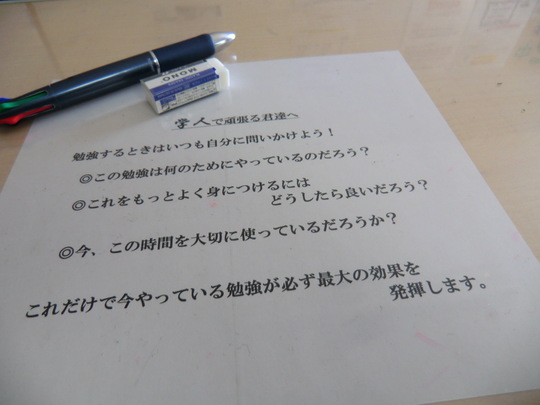 MONO
学人で頑張る君達へ
勉強するときはいつも自分に問いかけよう！
◎この勉強は何のためにやっているのだろう？
◎これをもっとよく身につけるには
どうしたら良いだろう？
◎今、この時間を大切に使っているだろうか？
これだけで今やっている勉強が必ず最大の効果を
発揮します。